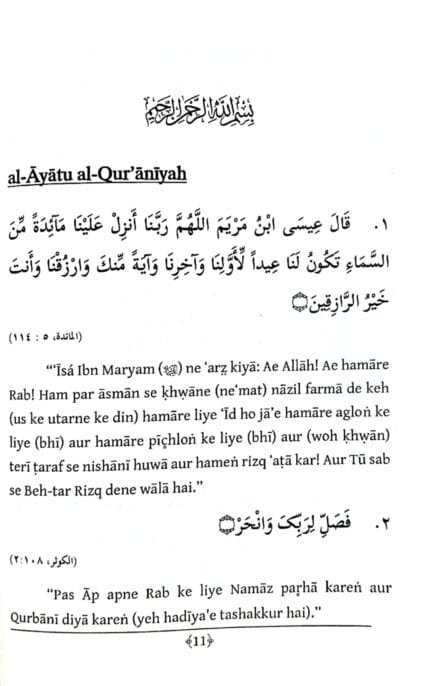 بِسْمِ اللهِ الرَّحْمٰنِ الرَّحِيْمِ
al-Āyātu al-Qur’āniyah
١. قَالَ عِيسَى ابْنُ مَرْيَمَ اللَّهُمَّ رَبَّنَا أَنزِلْ عَلَيْنَا مَآئِدَةً مِّنَ
السَّمَاءِ تَكُونُ لَنَا عِيداً لِّأَوَّلِنَا وَآخِرِنَا وَآيَةً مِّنكَ وَارْزُقْنَا وَأَنتَ
خَيْرُ الرَّازِقِينَ
(المائدة، ٥ : ١١٤)
“‘Īsá Ibn Maryam () ne ‘arz̤ kiyā: Ae Allāh! Ae hamāre
Rab! Ham par āsmān se ḳhwāne (ne‘mat) nāzil farmā de keh
(us ke utarne ke din) hamāre liye ‘Īd ho jā’e hamāre agloṅ ke
liye (bhī) aur hamāre pīçhloṅ ke liye (bhī) aur (woh ḳhwān)
terī t̤araf se nishānī huwā aur hameṅ rizq ‘at̤ā kar! Aur Tū sab
se Beh-tar Rizq dene wālā hai.”
٢. فَصَلِّ لِرَبِّكَ وَانْحَرْ
(الكوثر، ١٠٨:٢)
“Pas Āp apne Rab ke liye Namāz paṛhā kareṅ aur
Qurbānī diyā kareṅ (yeh hadīya’e tashakkur hai).”
﴾11﴿